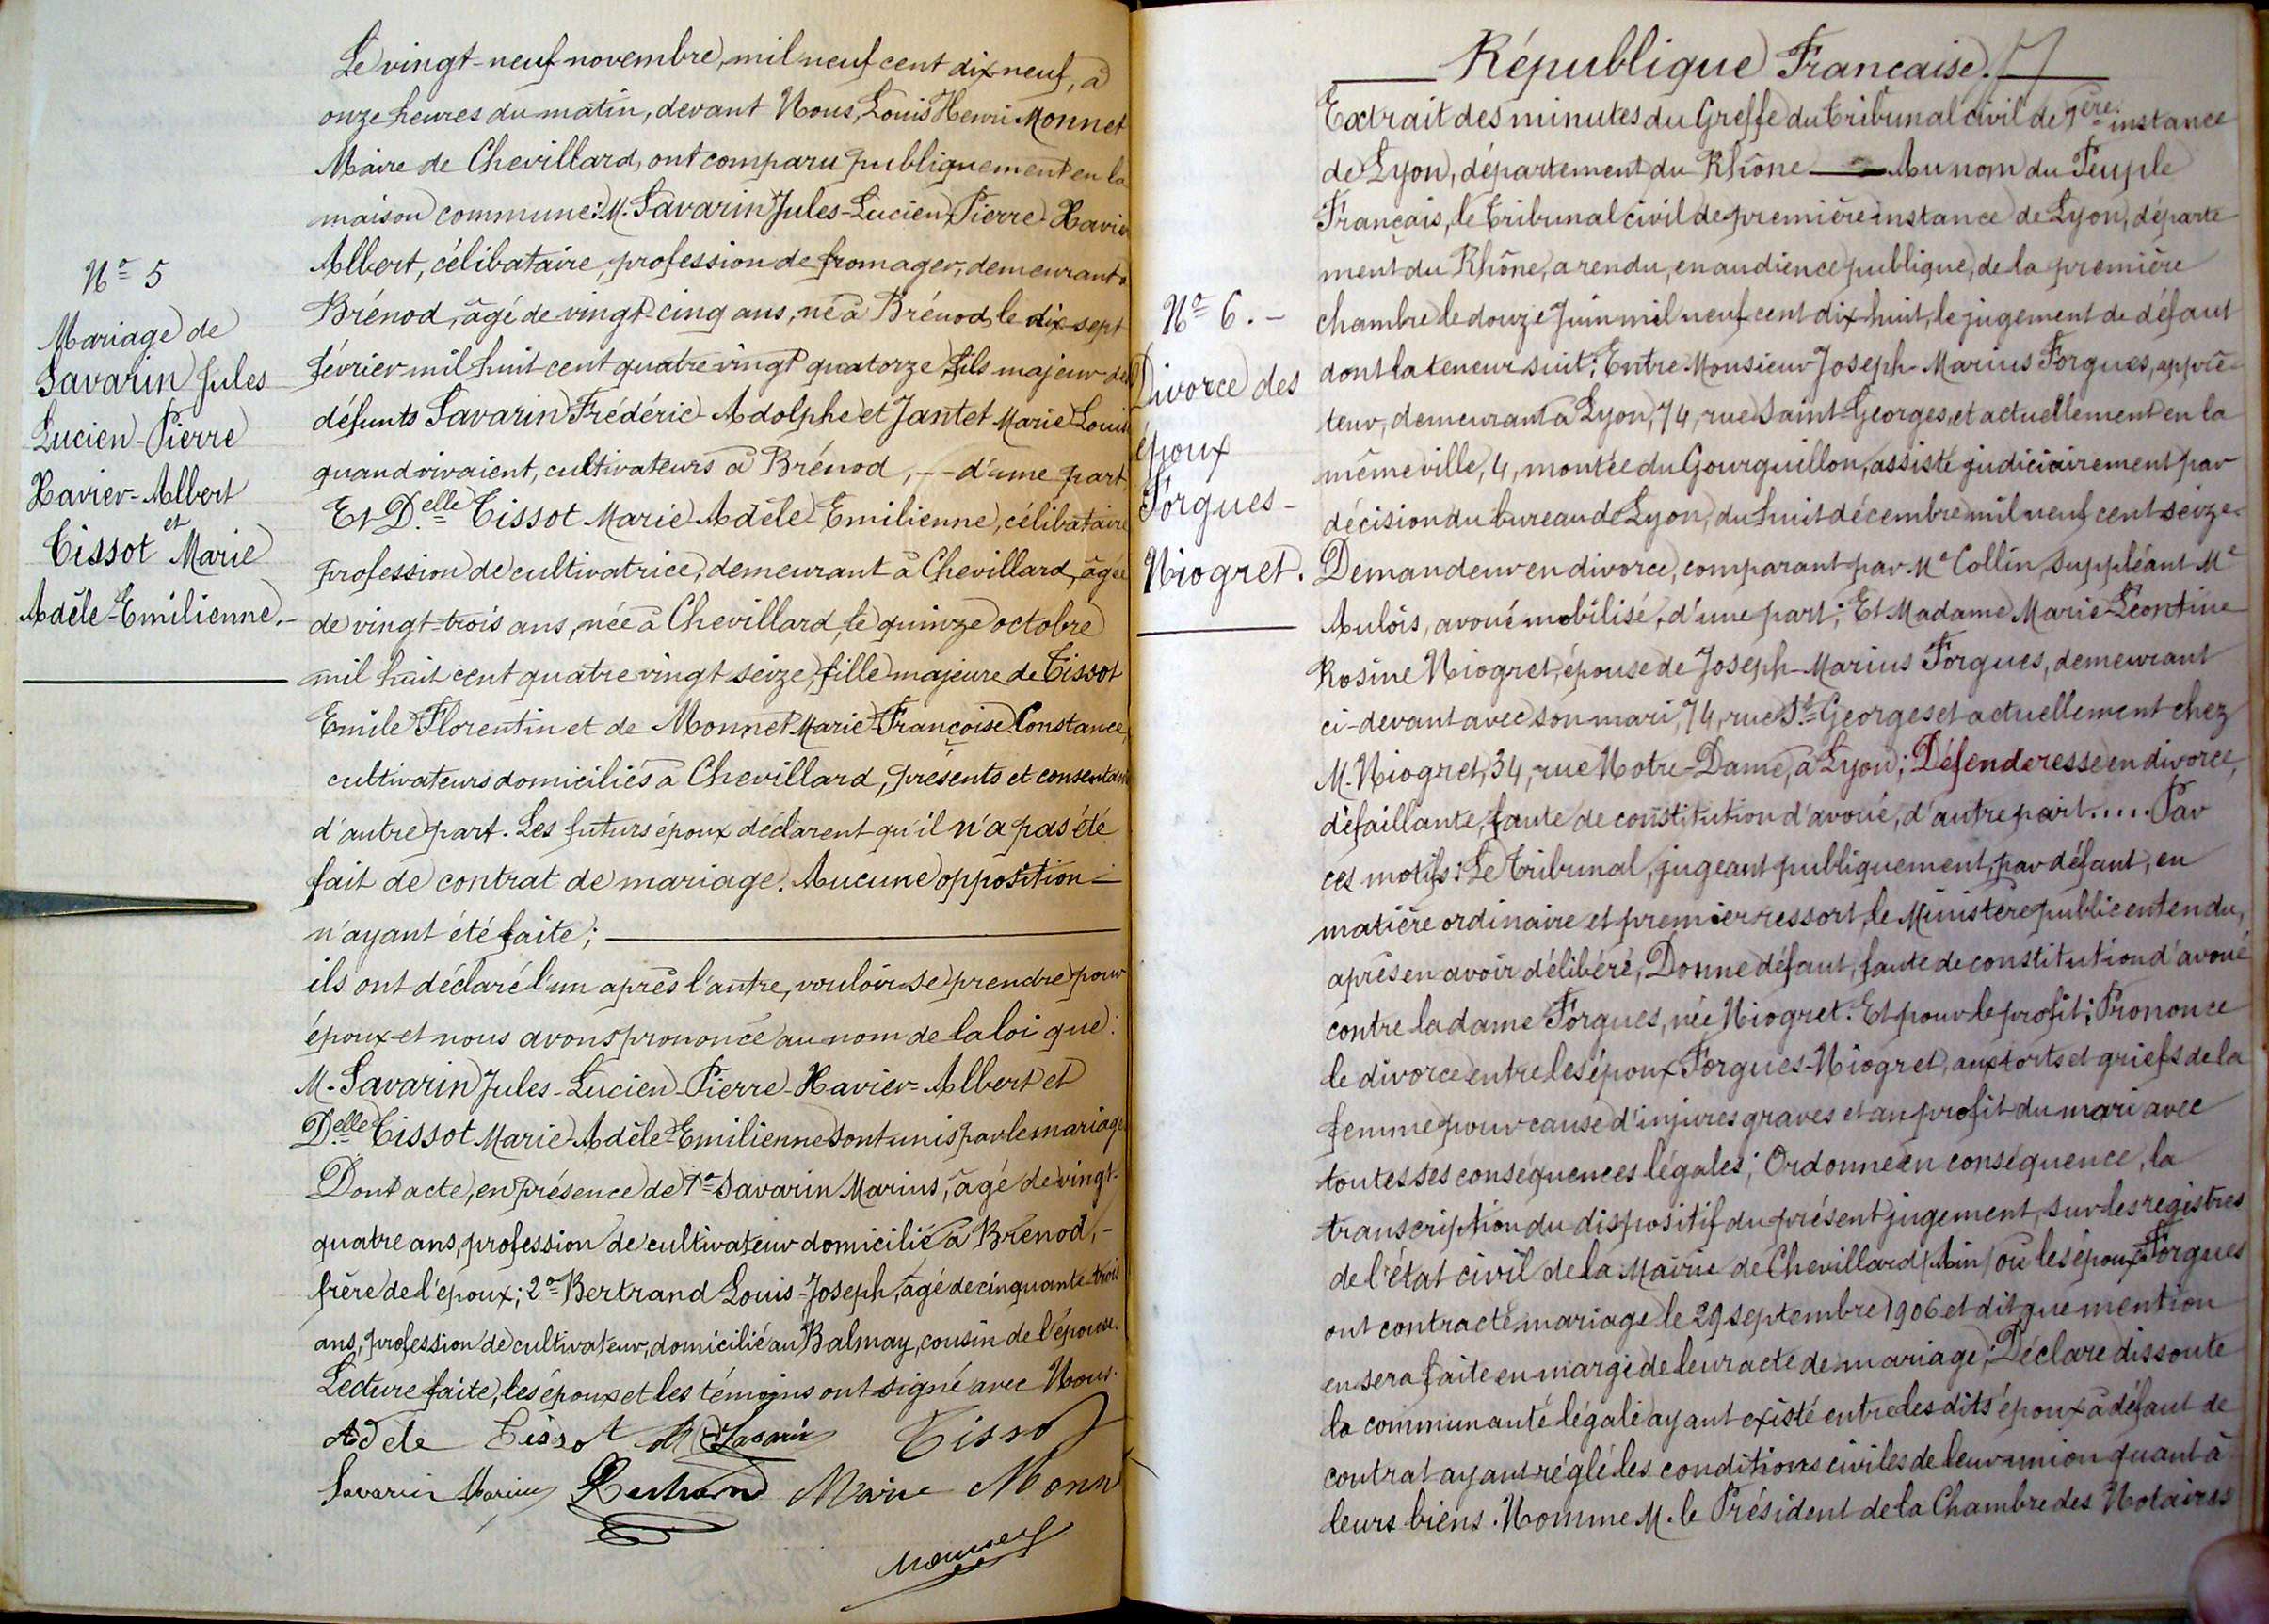 Le vingt-neuf novembre, mil neuf cent dix neuf, à
onze heures du matin, devant Nous, Louis Henri Monnet
Maire de Chevillard, ont comparu publiquement en la
maison commune: M. Savarin Jules-Lucien-Pierre-Xavier
Albert, célibataire, profession de fromager, demeurant à
Brénod, âgé de vingt-cinq ans, né à Brénod, le dix-sept
février mil huit cent quatre vingt quatorze, fils majeur de
défunts Savarin Frédéric-Adolphe et Jantet Marie Louise
quand vivaient, cultivateurs à Brénod, -- d'une part
Et Delle Tissot Marie-Adèle-Emilienne, célibataire
profession de cultivatrice, demeurant à Chevillard, âgée
de vingt-trois ans, née à Chevillard, le quinze octobre
mil huit cent quatre vingt seize, fille majeure de Tissot
Emile Florentin et de Monnet Marie-Françoise Constance,
cultivateurs domiciliés à Chevillard, présents et consentants
d'autre part. Les futurs époux déclarent qu'il n'a pas été
fait de contrat de mariage. Aucune opposition -
n'ayant été faite;
ils ont déclaré l'un après l'autre, vouloir se prendre pour
époux et nous avons prononcé au nom de la loi que:
M. Savarin Jules-Lucien-Pierre-Xavier-Albert et
Delle Tissot Marie-Adèle-Emilienne sont unis par le mariage
Dont acte, en présence de 1º Savarin Marius, âgé de vingt-
quatre ans, profession de cultivateur domicilié à Brénod, -
frère de l'époux; 2º Bertrand Louis-Joseph, âgé de cinquante-trois
ans, profession de cultivateur, domicilié au Balmay, cousin de l'épouse.
Lecture faite, les époux et les témoins ont signé avec Nous.
Adele Tissot Savarin Tissot
Savarin Marius Bertrand Marie Monn
Monnet
Nº 5
Mariage de
Savarin Jules
Lucien-Pierre
Xavier-Albert
et
Tissot Marie
Adèle-Emilienne.-
République Française. 17
Extrait des minutes du Greffe du Tribunal civil de 1ère instance
de Lyon, département du Rhône — Au nom du Peuple
Français, le Tribunal civil de première instance de Lyon, départe
ment du Rhône, a rendu, en audience publique, de la première
chambre le douze Juin mil neuf cent dix-huit, le jugement de défaut
dont la teneur suit; Entre Monsieur Joseph-Marius Forgues, apprê-
teur, demeurant à Lyon, 74, rue Saint-Georges, et actuellement en la
même ville, 4, montée du Gourguillon, assisté judiciairement par
décision du bureau de Lyon, du huit décembre mil neuf cent seize.
Demandeur en divorce, comparant par Me Collin, suppléant Me
Aulois, avoué mobilisé, d'une part; Et Madame Marie-Léontine
Rosine Niogret, épouse de Joseph-Marius Forgues, demeurant
ci-devant avec son mari, 74, rue St-Georges et actuellement chez
M. Niogret, 34, rue Notre-Dame, à Lyon; Défenderesse en divorce,
défaillante, faute de constitution d'avoué, d'autre part..... Par
ces motifs: Le Tribunal, jugeant publiquement, par défaut, en
matière ordinaire et premier ressort, le Ministère public entendu,
après en avoir délibéré, Donne défaut, faute de constitution d'avoué
contre la dame Forgues, née Niogret. Et pour le profit; Prononce
le divorce entre les époux Forgues-Niogret, aux torts et griefs de la
femme pour cause d'injures graves et au profit du mari avec
toutes ses conséquences légales; Ordonne en conséquence, la
transcription du dispositif du présent jugement, sur les registres
de l'état civil de la Mairie de Chevillard (Ain) où les époux Forgues
ont contracté mariage le 29 septembre 1906 et dit que mention
en sera faite en marge de leur acte de mariage; Déclare dissoute
la communauté légale ayant existé entre les dits époux à défaut de
contrat ayant réglé les conditions civiles de leur union quant à
leurs biens. Nomme M. le Président de la Chambre des Notaires
Nº 6. -
Divorce des
époux
Forgues-
Niogret.